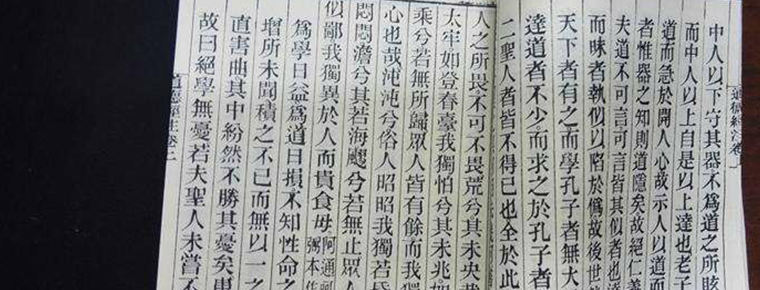 中人以下守其器不爲道之所眩
而中人以上自是以上達也老子
道而急於開人心故示人以道而
者惟器之知則道隱矣故絕仁義
夫道不可言可言皆其似者也
而昧者執似以陷於僞故後世
天下者有之而學孔子者無大
達道者不少而求之於孔子者
二聖人者皆不得已也全於此
人之所畏不可不畏荒兮其未央哉
太牢如登春臺我獨怕兮其未兆如
乘兮若無所歸眾人皆有餘而我獨
心也哉沌沌兮俗人昭昭我獨若
悶悶澹兮其若海飂兮若無止眾人
似鄙我獨異於人而貴食母
爲學日益爲道日損不知性命之
增所未聞積之不已而無以一之
直害曲其中紛然不勝其憂矣
故曰絕學無憂若夫聖人未嘗不